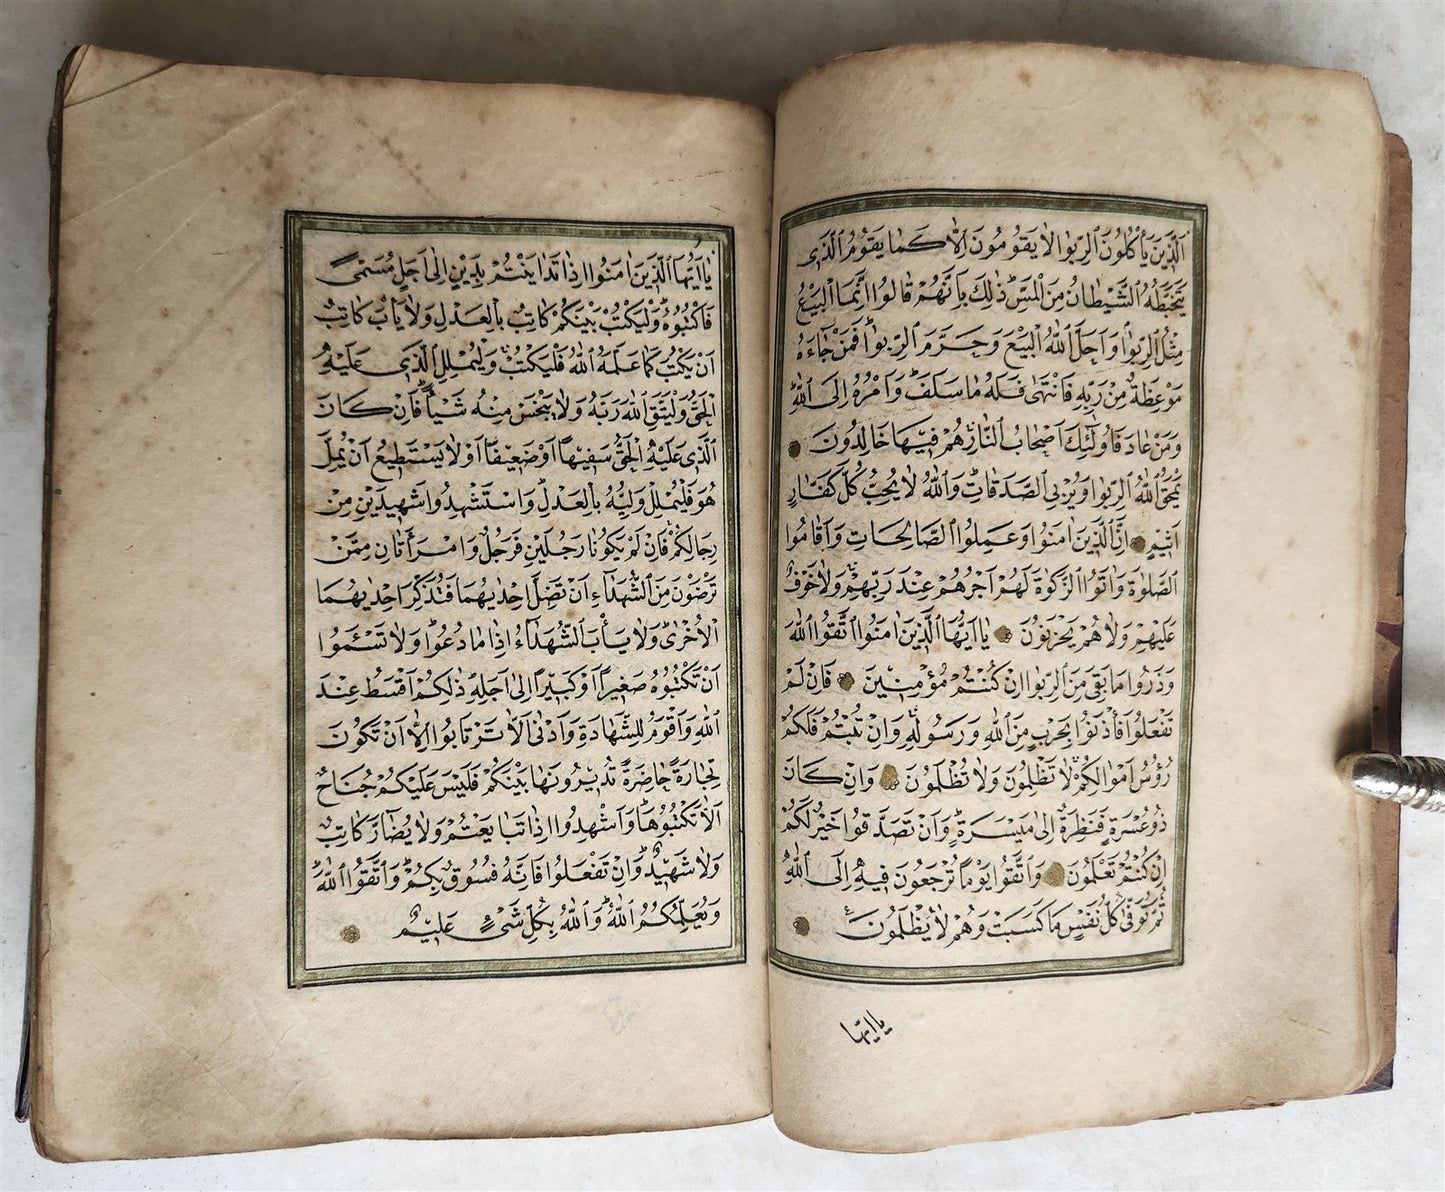 اَلَّذِينَ يَأْكُلُونَ الرِّبٰوا لَا يَقُومُونَ اِلَّا كَمَا يَقُومُ الَّذِى
يَتَخَبَّطُهُ الشَّيْطَانُ مِنَ الْمَسِّ ذٰلِكَ بِاَنَّهُمْ قَالُوا اِنَّمَا الْبَيْعُ
مِثْلُ الرِّبٰوا وَاَحَلَّ اللّٰهُ الْبَيْعَ وَحَرَّمَ الرِّبٰوا فَمَنْ جَٓاءَهُ
مَوْعِظَةٌ مِنْ رَبِّهِ فَانْتَهٰى فَلَهُ مَا سَلَفَ وَاَمْرُهُ اِلَى اللّٰهِ
وَمَنْ عَادَ فَاُولٰٓئِكَ اَصْحَابُ النَّارِ هُمْ فِيهَا خَالِدُونَ
يَمْحَقُ اللّٰهُ الرِّبٰوا وَيُرْبِى الصَّدَقَاتِ وَاللّٰهُ لَا يُحِبُّ كُلَّ كَفَّارٍ
اَثِيمٍ اِنَّ الَّذِينَ اٰمَنُوا وَعَمِلُوا الصَّالِحَاتِ وَاَقَامُوا
الصَّلٰوةَ وَاٰتَوُا الزَّكٰوةَ لَهُمْ اَجْرُهُمْ عِنْدَ رَبِّهِمْ وَلَا خَوْفٌ
عَلَيْهِمْ وَلَا هُمْ يَحْزَنُونَ يَٓا اَيُّهَا الَّذِينَ اٰمَنُوا اتَّقُوا اللّٰهَ
وَذَرُوا مَا بَقِىَ مِنَ الرِّبٰوا اِنْ كُنْتُمْ مُؤْمِنِينَ فَاِنْ لَمْ
تَفْعَلُوا فَأْذَنُوا بِحَرْبٍ مِنَ اللّٰهِ وَرَسُولِهِ وَاِنْ تُبْتُمْ فَلَكُمْ
رُؤُسُ اَمْوَالِكُمْ لَا تَظْلِمُونَ وَلَا تُظْلَمُونَ وَاِنْ كَانَ
ذُو عُسْرَةٍ فَنَظِرَةٌ اِلٰى مَيْسَرَةٍ وَاَنْ تَصَدَّقُوا خَيْرٌ لَكُمْ
اِنْ كُنْتُمْ تَعْلَمُونَ وَاتَّقُوا يَوْمًا تُرْجَعُونَ فِيهِ اِلَى اللّٰهِ
ثُمَّ تُوَفّٰى كُلُّ نَفْسٍ مَا كَسَبَتْ وَهُمْ لَا يُظْلَمُونَ
يا ايها
يَٓا اَيُّهَا الَّذِينَ اٰمَنُوا اِذَا تَدَايَنْتُمْ بِدَيْنٍ اِلٰى اَجَلٍ مُسَمًّى
فَاكْتُبُوهُ وَلْيَكْتُبْ بَيْنَكُمْ كَاتِبٌ بِالْعَدْلِ وَلَا يَأْبَ كَاتِبٌ
اَنْ يَكْتُبَ كَمَا عَلَّمَهُ اللّٰهُ فَلْيَكْتُبْ وَلْيُمْلِلِ الَّذِى عَلَيْهِ
الْحَقُّ وَلْيَتَّقِ اللّٰهَ رَبَّهُ وَلَا يَبْخَسْ مِنْهُ شَيْـًٔا فَاِنْ كَانَ
الَّذِى عَلَيْهِ الْحَقُّ سَفِيهًا اَوْ ضَعِيفًا اَوْ لَا يَسْتَطِيعُ اَنْ يُمِلَّ
هُوَ فَلْيُمْلِلْ وَلِيُّهُ بِالْعَدْلِ وَاسْتَشْهِدُوا شَهِيدَيْنِ مِنْ
رِجَالِكُمْ فَاِنْ لَمْ يَكُونَا رَجُلَيْنِ فَرَجُلٌ وَامْرَاَتَانِ مِمَّنْ
تَرْضَوْنَ مِنَ الشُّهَدَٓاءِ اَنْ تَضِلَّ اِحْدٰيهُمَا فَتُذَكِّرَ اِحْدٰيهُمَا
الْاُخْرٰى وَلَا يَأْبَ الشُّهَدَٓاءُ اِذَا مَا دُعُوا وَلَا تَسْـَٔمُوا
اَنْ تَكْتُبُوهُ صَغِيرًا اَوْ كَبِيرًا اِلٰى اَجَلِهِ ذٰلِكُمْ اَقْسَطُ عِنْدَ
اللّٰهِ وَاَقْوَمُ لِلشَّهَادَةِ وَاَدْنٰى اَلَّا تَرْتَابُوا اِلَّا اَنْ تَكُونَ
تِجَارَةً حَاضِرَةً تُدِيرُونَهَا بَيْنَكُمْ فَلَيْسَ عَلَيْكُمْ جُنَاحٌ
اَلَّا تَكْتُبُوهَا وَاَشْهِدُوا اِذَا تَبَايَعْتُمْ وَلَا يُضَٓارَّ كَاتِبٌ
وَلَا شَهِيدٌ وَاِنْ تَفْعَلُوا فَاِنَّهُ فُسُوقٌ بِكُمْ وَاتَّقُوا اللّٰهَ
وَيُعَلِّمُكُمُ اللّٰهُ وَاللّٰهُ بِكُلِّ شَىْءٍ عَلِيمٌ